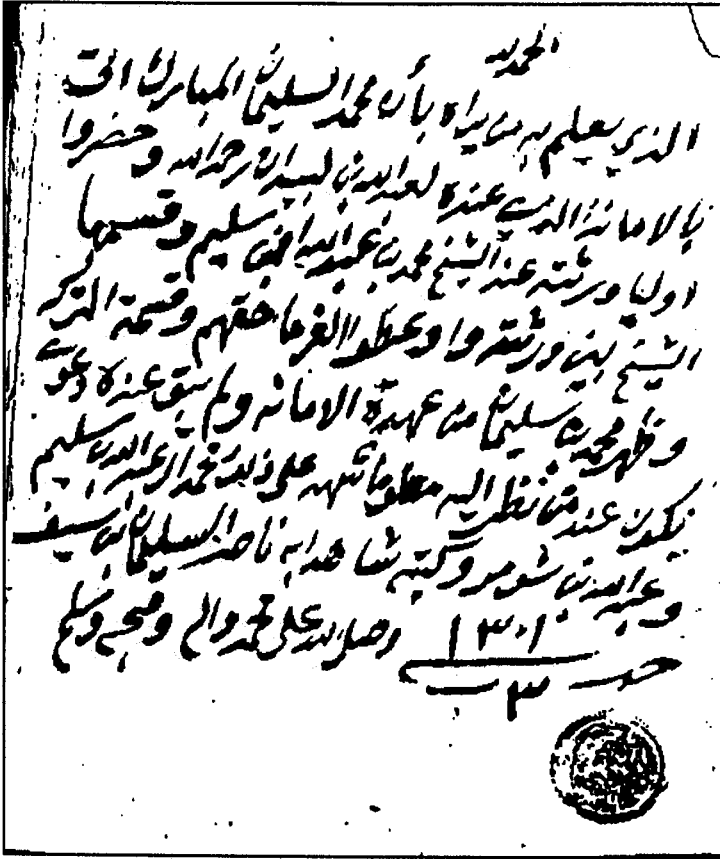 الحمد لله
الذي يعلم به من يراه بأن محمد السليمان المبارك اتى
بالامانة الذي عنده لعبدالله بن لبيدان رحمه الله وحضروا
اوليا ورثته عند الشيخ محمد بن عبدالله بن سليم وقسمها
الشيخ بين ورثته واوعطوا الغرما حقهم وقسمة التركه
وظهر محمد بن سليمان من عهدة الامانه ولم يبق عنده دعوى
يكون عند من نظر اليه معلوما شهد على ذلك محمد العبدالله بن سليم
وعبدالله بن شومر وكتبه شاهدا به ناصر السليمان بن سيف
حرر ٣ ١٣٠١ وصلى الله على محمد واله وصحبه وسلم